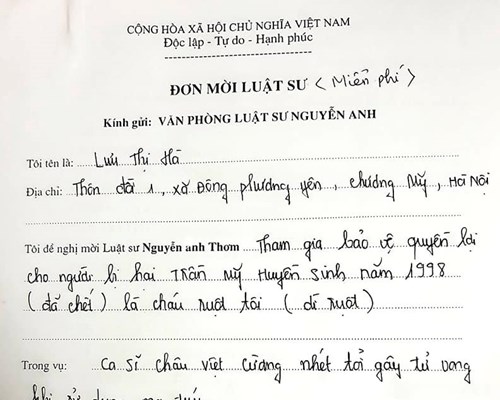 CỘNG HÒA XÃ HỘI CHỦ NGHĨA VIỆT NAM
Độc lập - Tự do - Hạnh phúc
ĐƠN MỜI LUẬT SƯ < Miễn phí >
Kính gửi: VĂN PHÒNG LUẬT SƯ NGUYỄN ANH
Tôi tên là: Lưu Thị Hà
Địa chỉ: Thôn đồi 1, xã Đông phương yên, chương Mỹ, Hà Nội
Tôi đề nghị mời Luật sư Nguyễn anh Thơm Tham gia bảo vệ quyền lợi
cho người bị hai Trần Mỹ Huyền sinh năm 1998
( đã chết ) là cháu ruột tôi ( dì ruột )
Trong vụ: Ca sĩ châu việt cường nhét tỏi gây tử vong
khi sử dụng